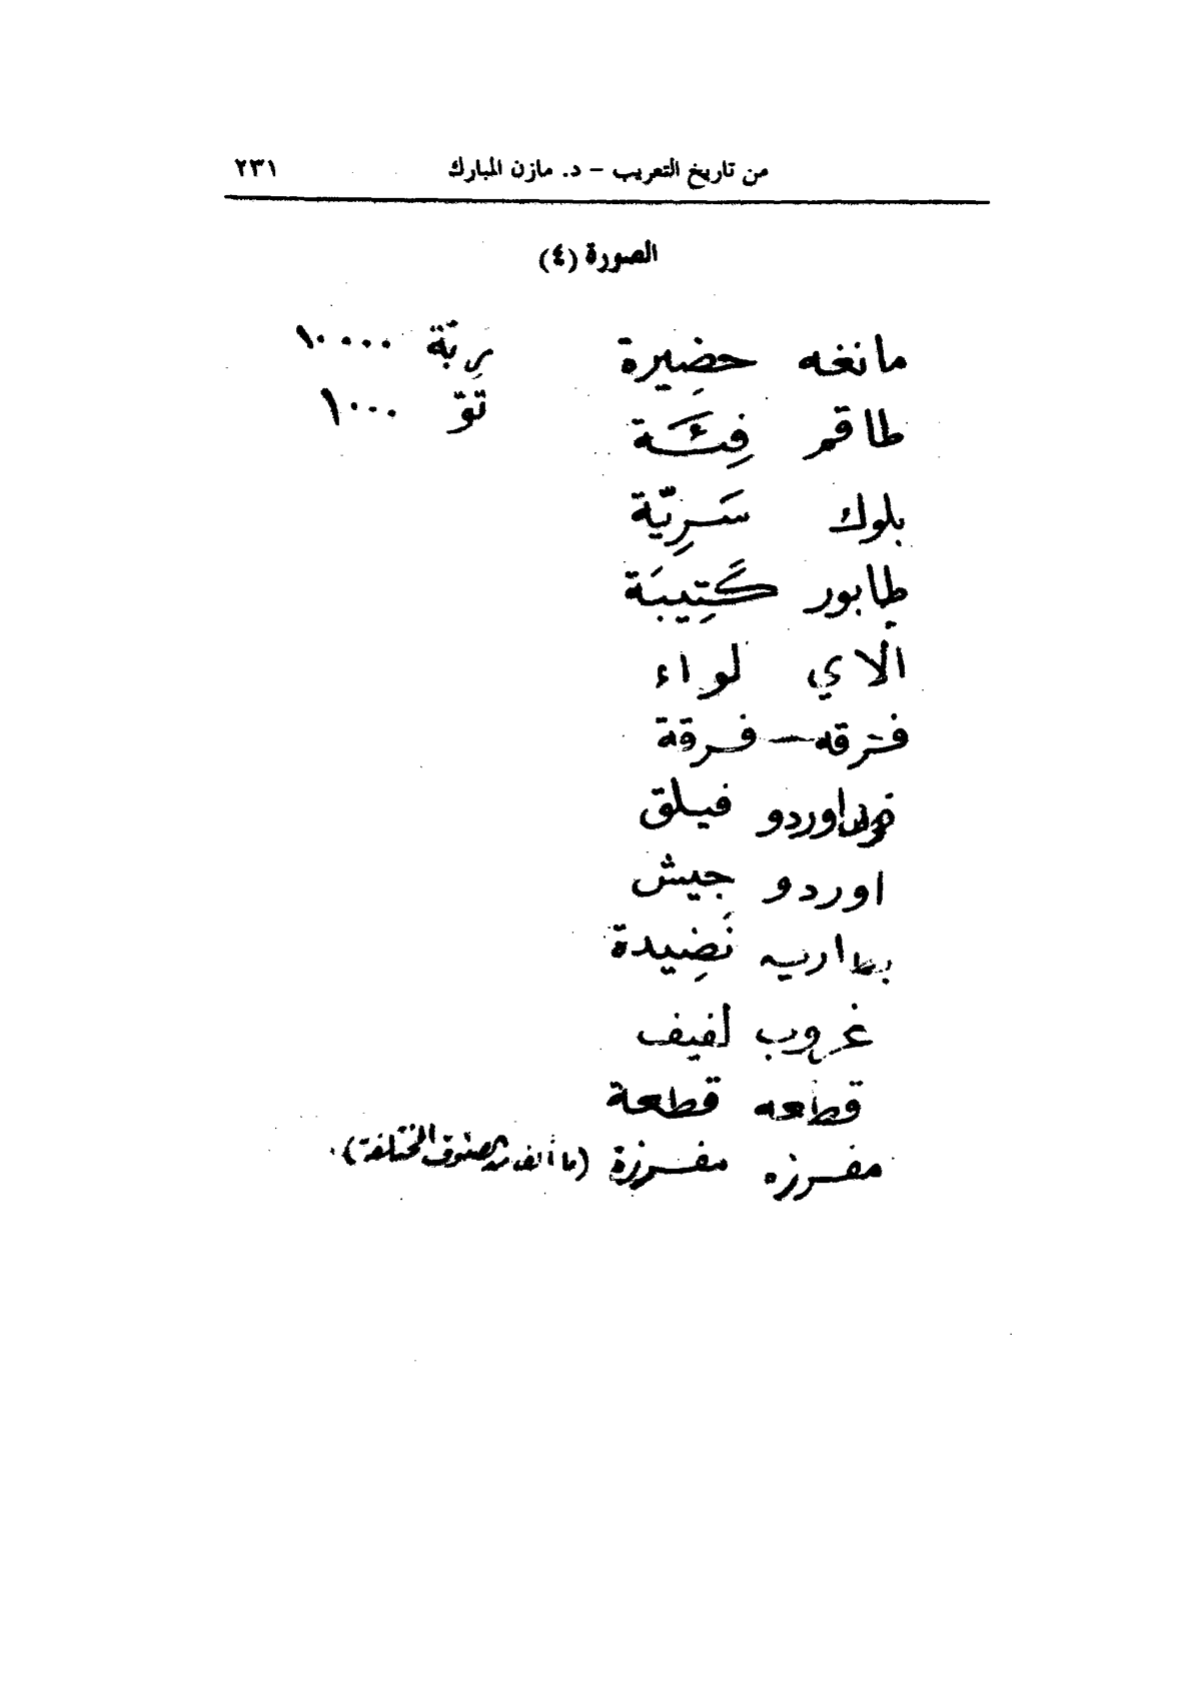 من تاريخ التعريب – د. مازن المبارك ٢٣١
الصورة (٤)
مانغه حضِيرة رِبّة ١٠٠٠٠
طاقم فِئَة تَوّ ١٠٠٠
بلوك سَرِيّة
طابور كَتِيبَة
الاي لواء
فرقه – فرقة
اوردو فيلق
اوردو جيش
بطاريه نَضِيدة
غروب لفيف
قطعه قطعة
مفرزه مفرزة (ما ألف من الصنوف المختلفة).